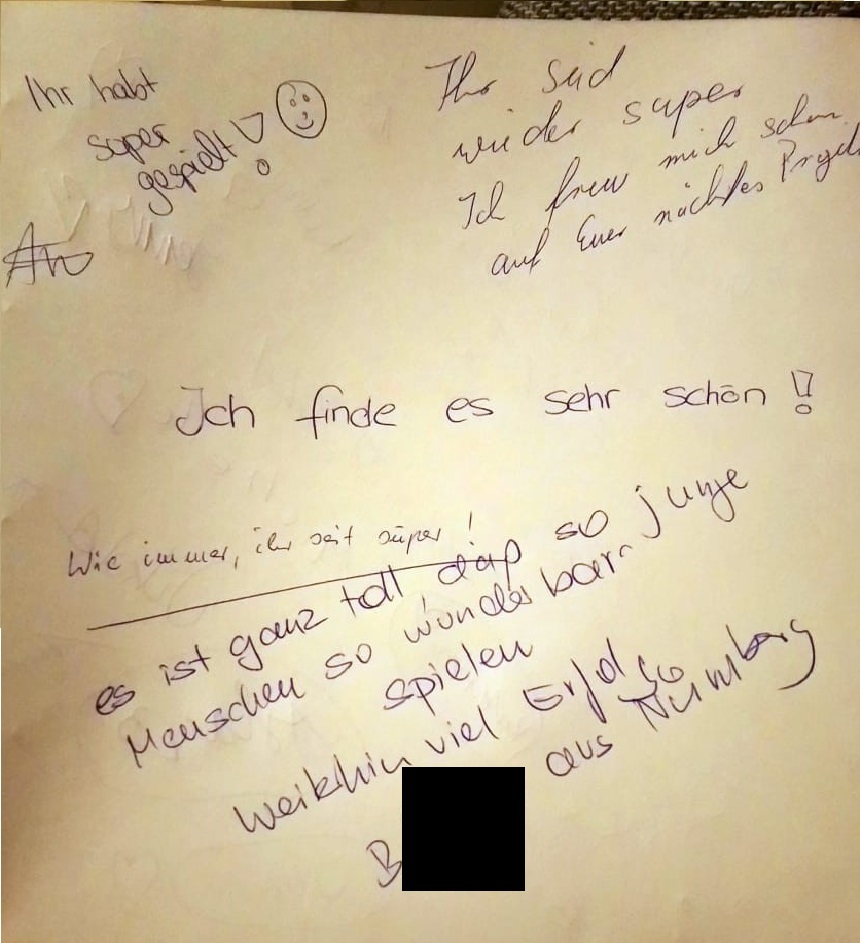 Ihr habt
super
gespielt!
Ihr seid
wieder super
Ich freu mich schon
auf Euer nächstes
Ich finde es sehr schön!
Wie immer, ihr seit super!
es ist ganz toll daß so junge
Menschen so wunderbar
spielen
weiterhin viel Erfolg
B aus Nürnberg